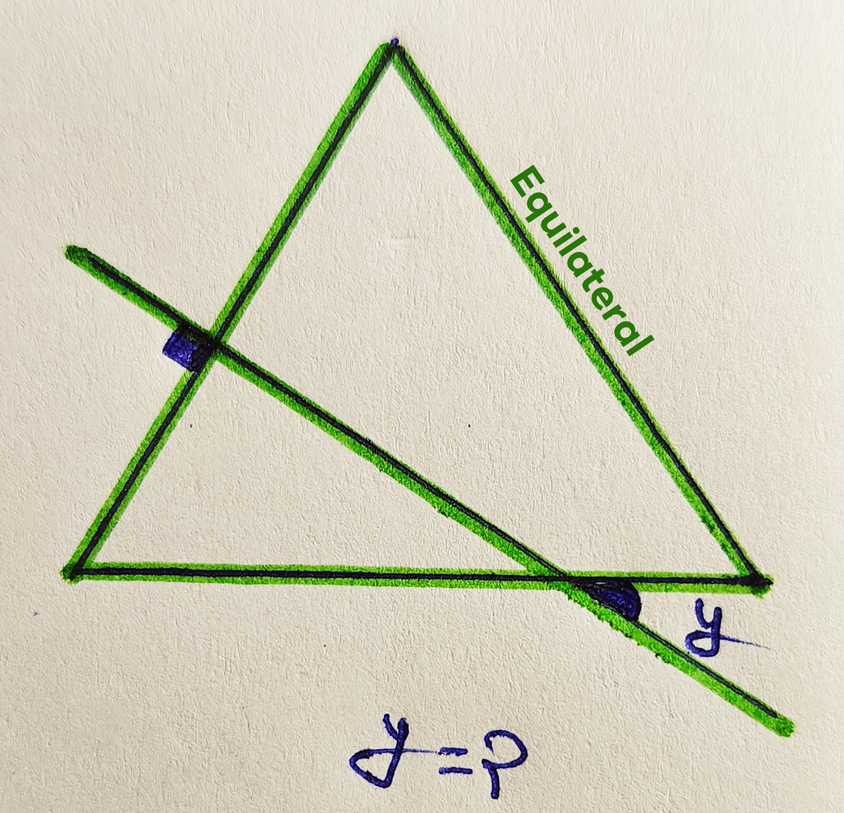 Equilateral
y
y = ?